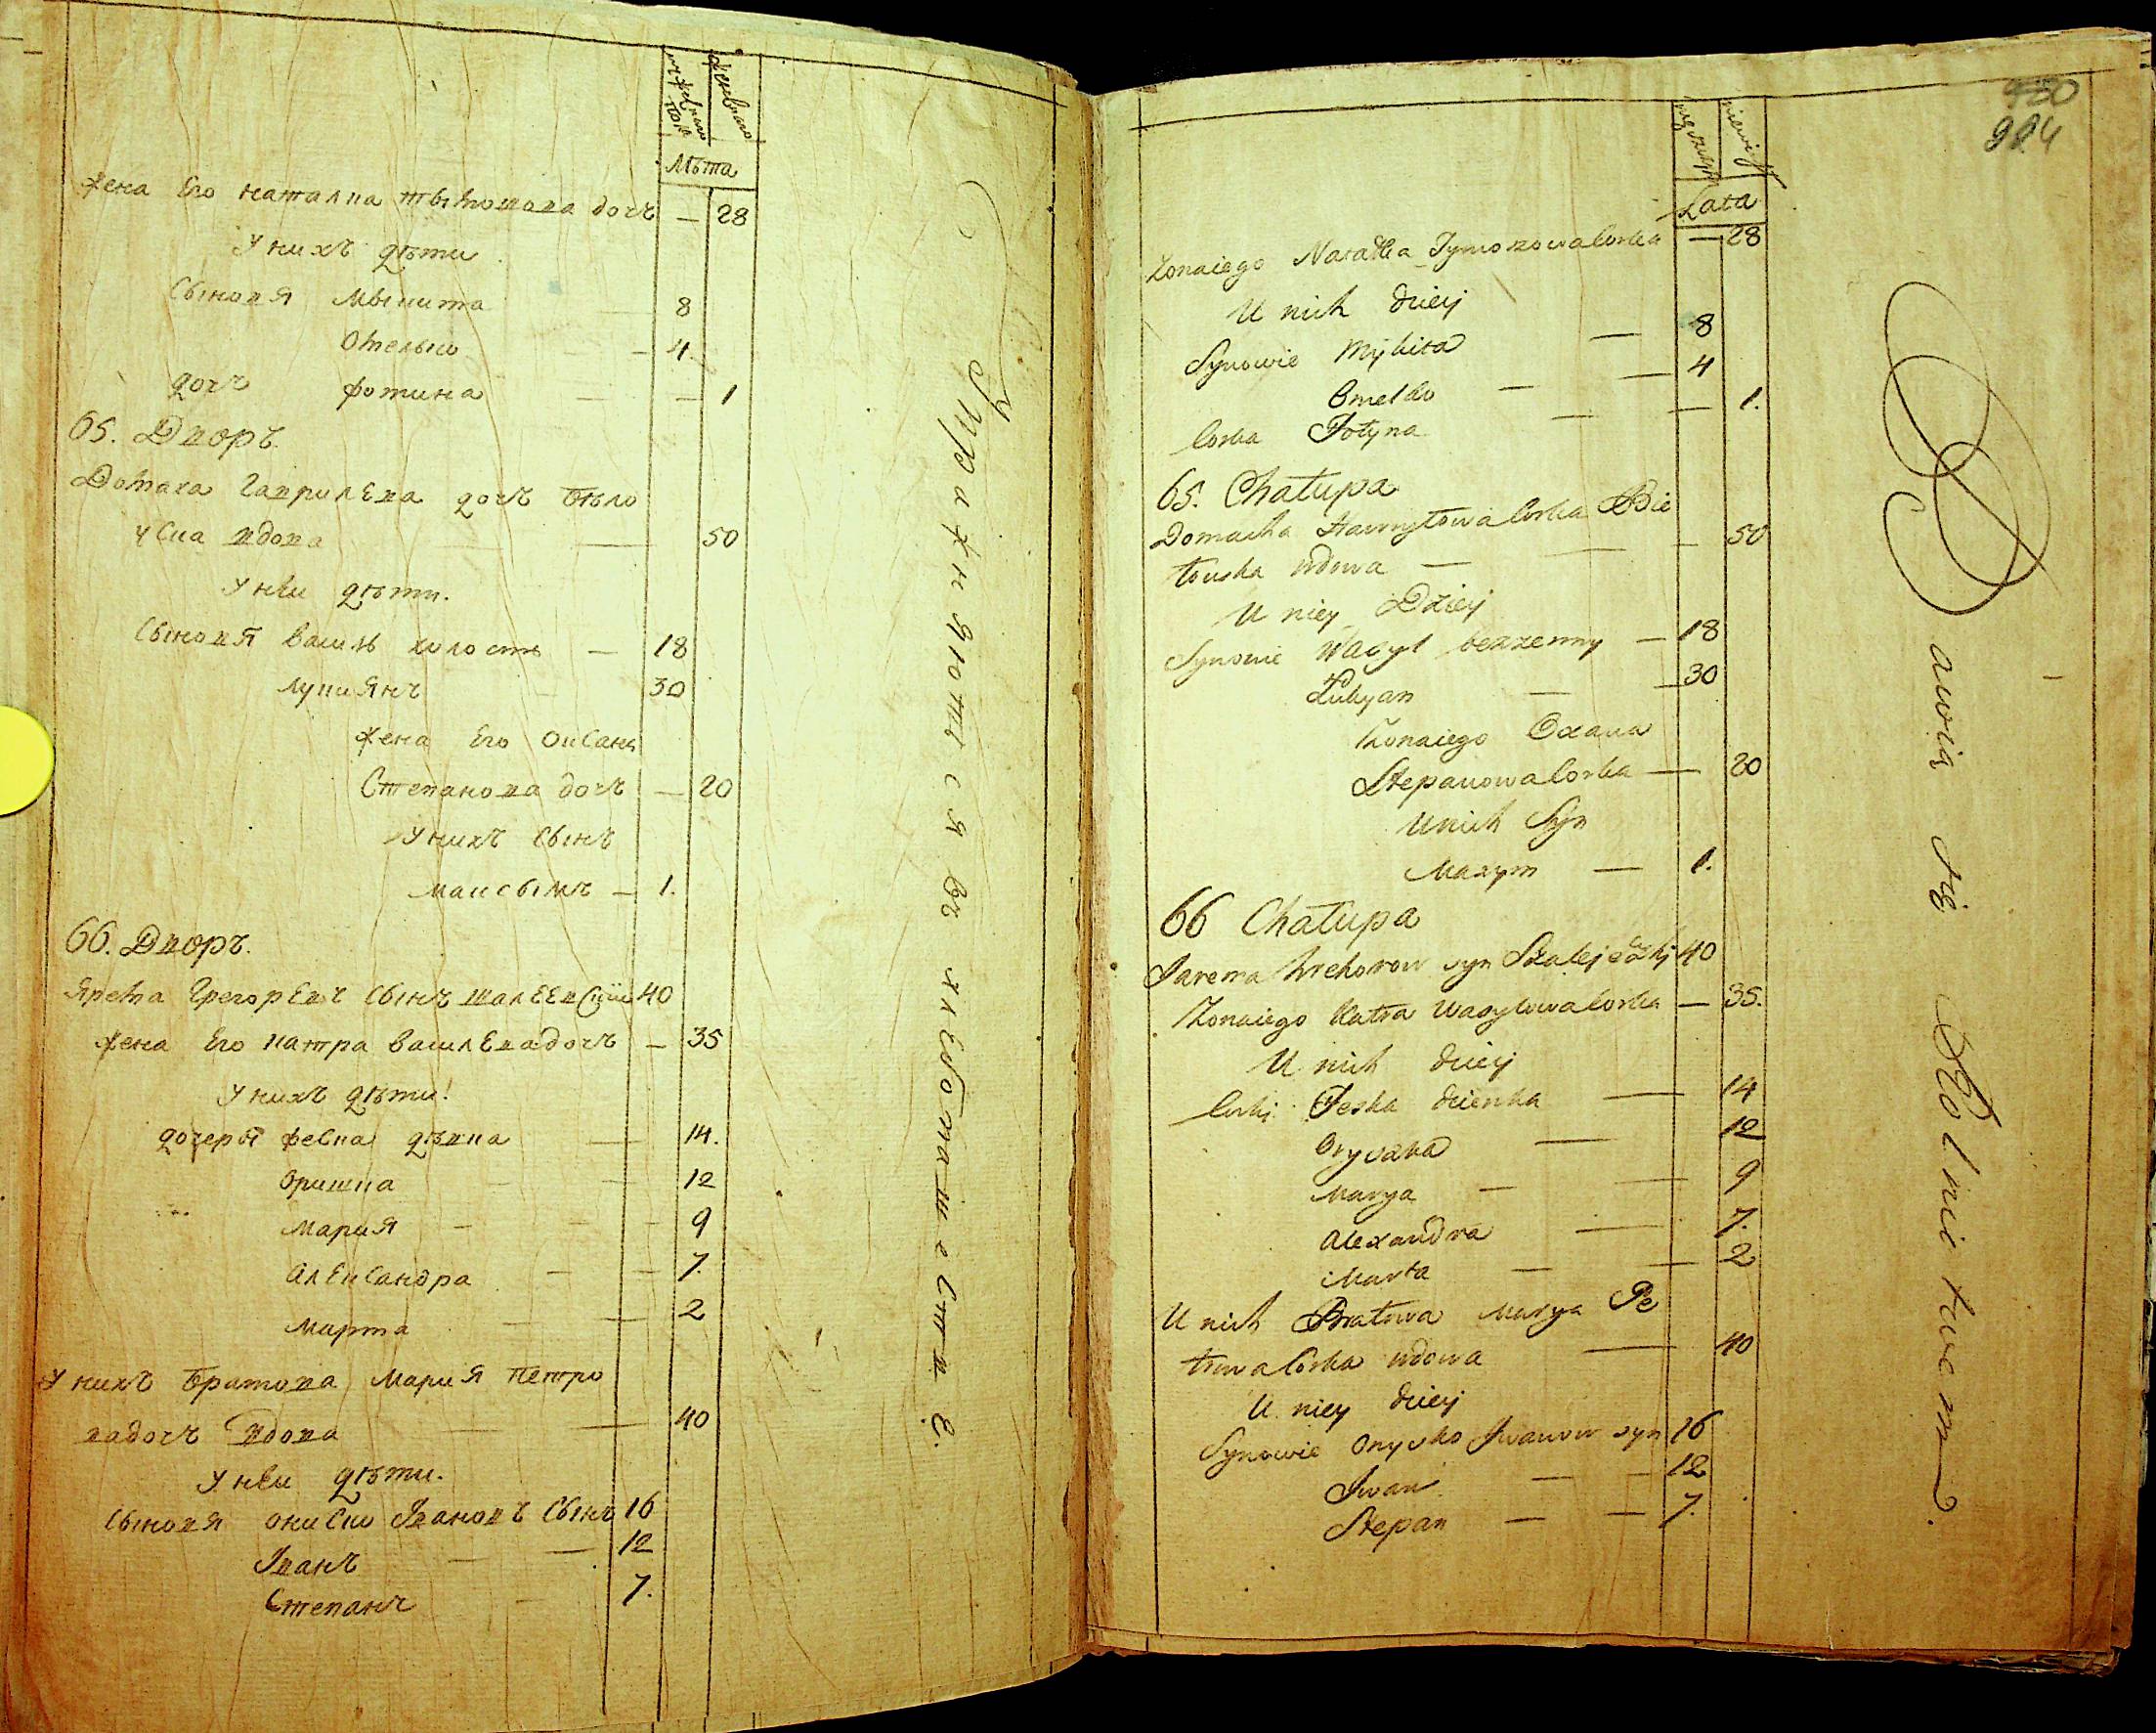 Лѣта
жена Его наталка тымошова дочъ — 28
У нихъ дѣти
Сыновя Мыкита — 8
Омелько — 4.
дочъ фотина — — 1
65. Дворъ.
Домаха Гаврилева дочъ Бѣло
уска вдова — — 50
У неи дѣти.
Сыновя василь холостъ — 18
лукиянъ — 30
жена Его оксана
Степанова дочъ — 20
У нихъ Сынъ
максымъ — 1.
66. Дворъ.
Ярема Грегоревъ Сынъ 40
жена Его катра василевадочъ — 35
У нихъ дѣти!
дочеры феска дѣвка — 14.
Оришка — — 12
Мария — — — 9
Александра — — 7.
Марта — — 2
У нихъ братова Мария Петро
вадочъ вдова — — 40
У неи дѣти.
Сыновя ониско Ивановъ Сынъ 16
Иванъ — — 12
Степанъ — 7.
Упражняются въ хлебопашествѣ.
430
904
Lata
Żonaiego Natałka Tymoszowa Corka — 28
U nich dzieij
Synowie Mykita — 8
Omelko — — 4
Corka Fotyna — — 1.
65. Chałupa
Domacha Hawryłowa Corka Bie
łouska wdowa — — — 50
U niey Dzieij
Synowie Wasyl bezzenny — 18
Łukyan — — 30
Żonaiego Oxana
Stepanowa Corka — 20
U nich Syn
Maxym — 1.
66 Chałupa
Jarema Hrehorow syn 40
Żonaiego Katra Wasylowa Corka — 35.
U nich dzieij
Corki Feska dziewka — 14
Oryszka — 12
Marya — — 9
Alexandra — 7.
Marta — — 2
U nich Bratowa Marya Pe
trowa Corka wdowa — 40
U niey dzieij
Synowie Onysko Iwanow syn 16
Iwan — — 12
Stepan — — 7.
Bawią się Rolnictwem.